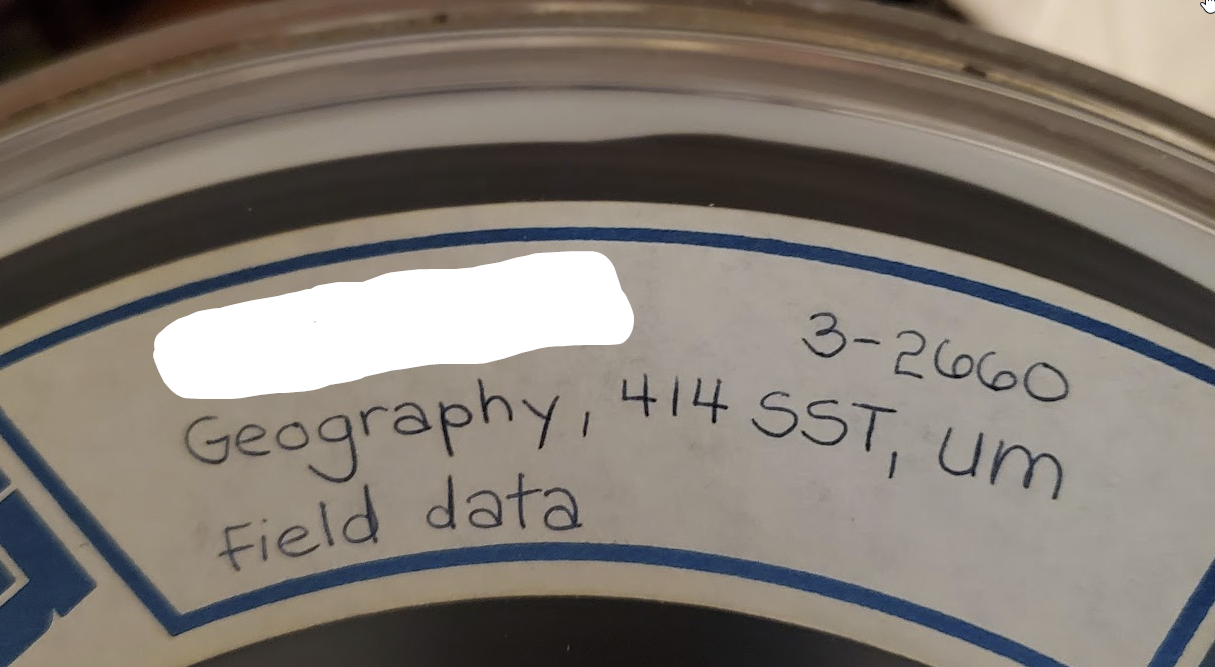 3-2660
Geography, 414 SST, um
Field data